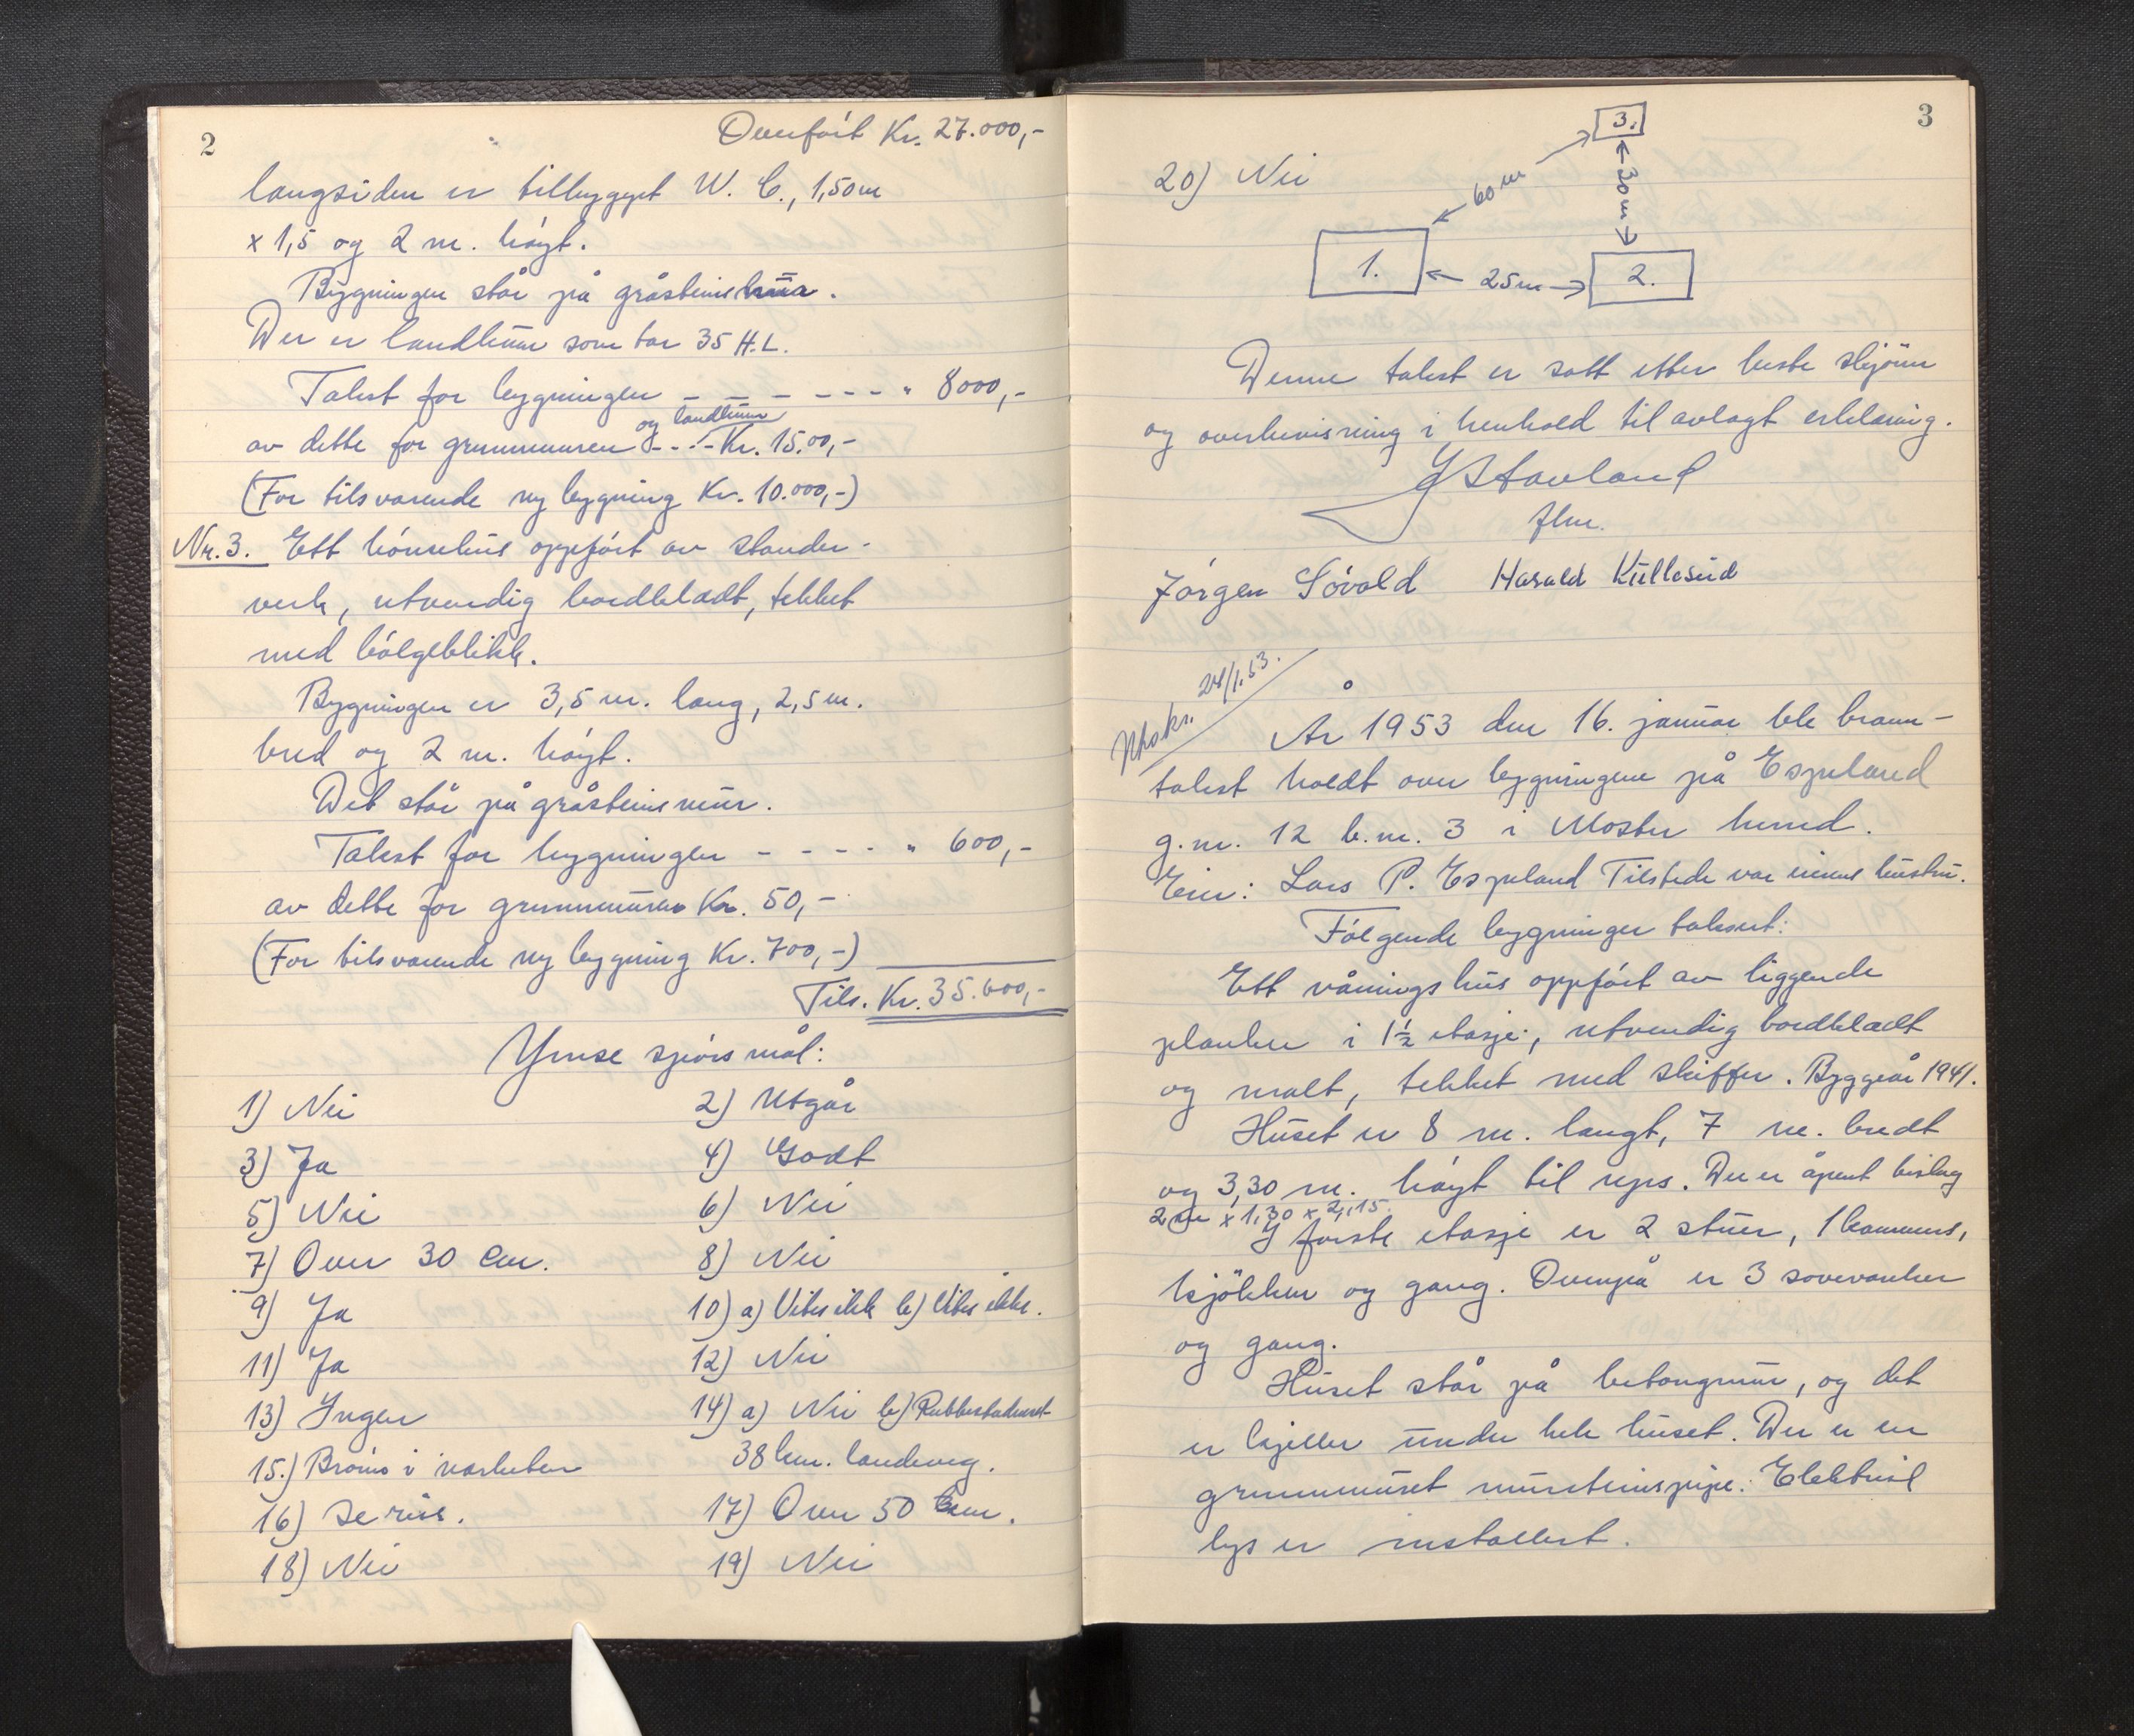 2
Overført Kr. 27.000,-
langsiden er tilbygget W. C., 1,50m
x 1,5 og 2 m. høgt.
Bygningen står på gråsteins
Der er landkum som tar 35 H.L.
Takst for bygningen - - - - - - " 8000,-
og landkum
av dette for grunnmuren - - - Kr. 15.00,-
(For tilsvarende ny bygning Kr. 10.000,-)
Nr. 3. Ett hønsehus oppført av stender-
verk, utvendig bordkledt, tekket
med bølgeblikk.
Bygningen er 3,5 m. lang, 2,5 m.
bred og 2 m. høgt.
Det står på gråsteinsmur.
Takst for bygningen - - - - " 600,-
av dette for grunnmuren Kr. 50,-
(For tilsvarende ny bygning Kr. 700,-)
Tils. Kr. 35.600,-
Ymse spørsmål:
1) Nei 2) Utgår
3) Ja 4) Godt
5) Nei 6) Nei
7) Over 30 cm. 8) Nei
9) Ja 10) a) Vites ikke b) Vites ikke.
11) Ja 12) Nei
13) Ingen 14) a) Nei b) Rubbestadneset
15.) Brønn i nærheten 38 km. landeveg.
16) Se riss. 17) Over 50 cm.
18) Nei 19) Nei
3
20) Nei
3.
60 m
30 m
1.
25m
2.
Denne takst er satt etter beste skjønn
og overbevisning i henhold til avlagt erklæring.
J Stavland
flm.
Jørgen Søvold Harald Kulleseid
Utskr. 24/1.53.
År 1953 den 16. januar ble brann-
takst holdt over bygningene på Espeland
g.nr. 12 b.nr. 3 i Moster herred.
Eier: Lars P. Espeland Tilstede var eierens hustru.
Følgende bygninger taksert:
Ett våningshus oppført av liggende
planker i 1½ etasje, utvendig bordkledt
og malt, tekket med skiffer. Byggeår 1941.
Huset er 8 m. langt, 7 m. bredt
og 3,30 m. høgt til reps. Der er åpent bislag
2 m x 1,30 x 2,15.
I første etasje er 2 stuer, 1 kammers,
kjøkken og gang. Ovenpå er 3 soveværelser
og gang.
Huset står på betongmur, og det
er kjeller under hele huset. Der er en
grunnmuret mursteinspipe. Elektrisk
lys er installert.